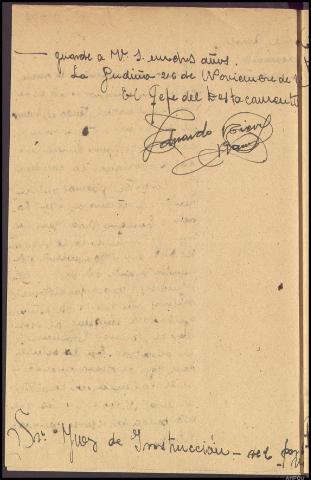 guarde a V. S. muchos años.
La Gudiña 26 de Noviembre de 1
El Jefe del Destacamento
Eduardo
Sr. Juez de Instrucción - del